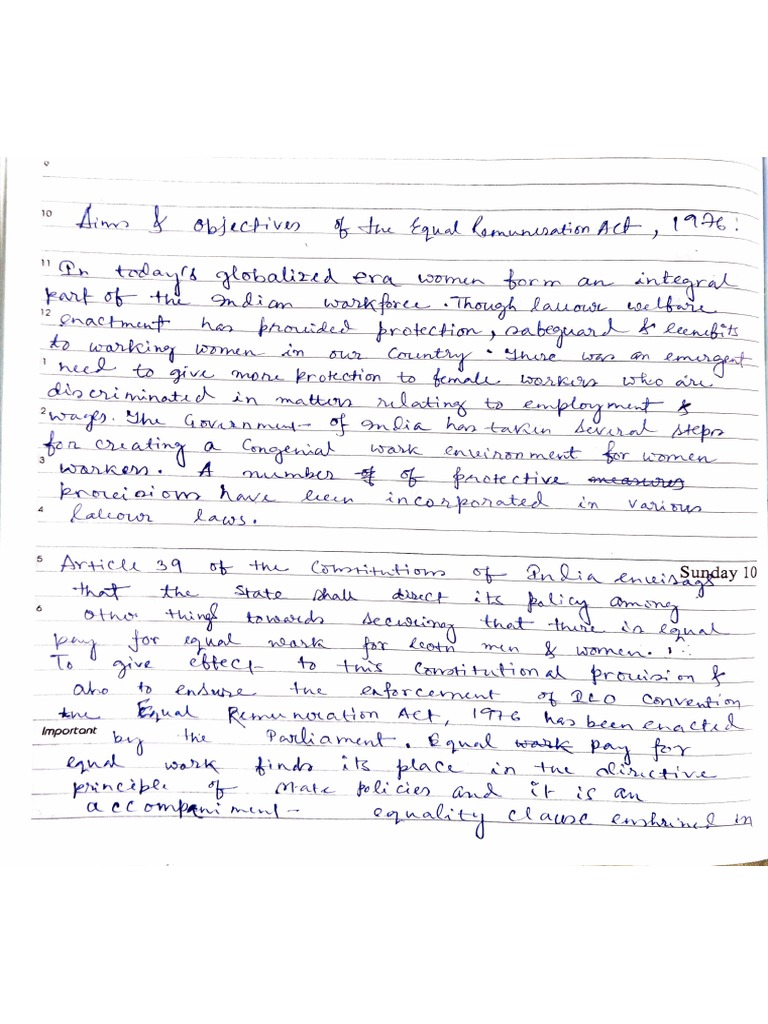 9
10 Aims & Objectives of the Equal Remuneration Act, 1976:
11 In today's globalized era women form an integral
part of the Indian workforce. Though labour welfare
12 enactment has provided protection, safeguard & benefits
to working women in our Country. There was an emergent
1 need to give more protection to female workers who are
discriminated in matters relating to employment &
2 wages. The Government of India has taken several steps
for creating a congenial work environment for women
3 workers. A number of of protective measures
provisions have been incorporated in various
4 labour laws.
5 Article 39 of the Constitutions of India envisags Sunday 10
that the State shall direct its policy among
6 other things towards securing that there is equal
pay for equal work for both men & women.
To give effect to this Constitutional provision &
also to ensure the enforcement of ILO convention
the Equal Remuneration Act, 1976 has been enacted
Important by the Parliament. Equal work pay for
equal work finds its place in the directive
principle of state policies and it is an
accompaniment equality clause enshrined in